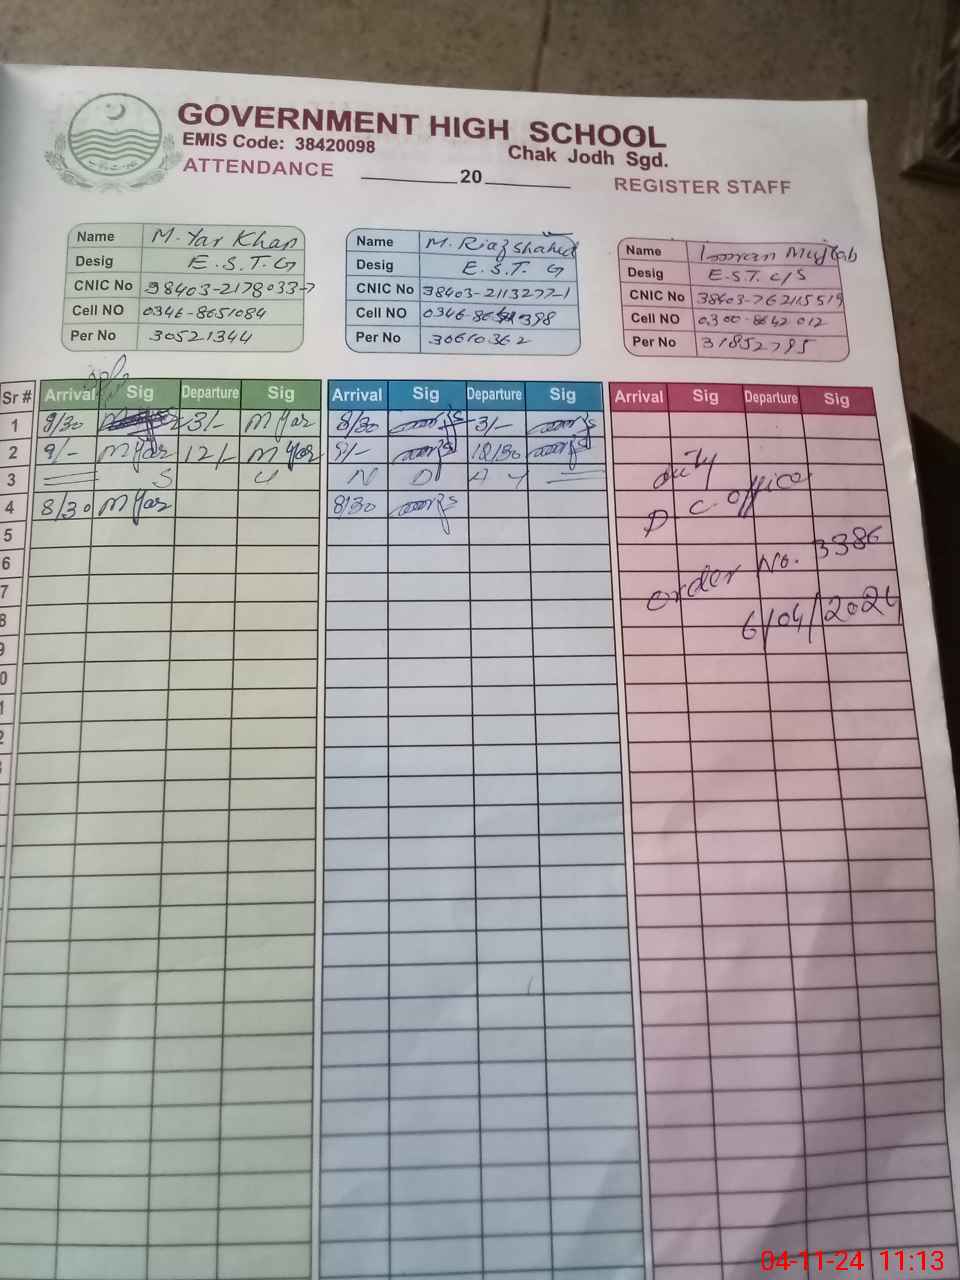 GOVERNMENT HIGH SCHOOL
EMIS Code: 38420098
Chak Jodh Sgd.
ATTENDANCE ________20________ REGISTER STAFF
Name M. Yar Khan
Desig E.S.T. G
CNIC No 38403-2178033-7
Cell NO 0346-8651084
Per No 30521344
Name M. Riaz Shahid
Desig E.S.T. G
CNIC No 38403-2113277-1
Cell NO 0346-86 398
Per No 30610362
Name Imran Mujtab
Desig E.S.T. C/S
CNIC No 38403-762115519
Cell NO 0300-8642012
Per No 31852795
Sr # Arrival Sig Departure Sig Arrival Sig Departure Sig Arrival Sig Departure Sig
1 8/30 3/- M Yar 8/30 3/-
2 9/- M Yar 12/- M Yar 9/-
3 S U N D A Y
4 8/30 M Yar 8/30
5
6
7
8
9
0
1
2
3
duty
D C office
order No. 3386
6/04/2024
04-11-24 11:13